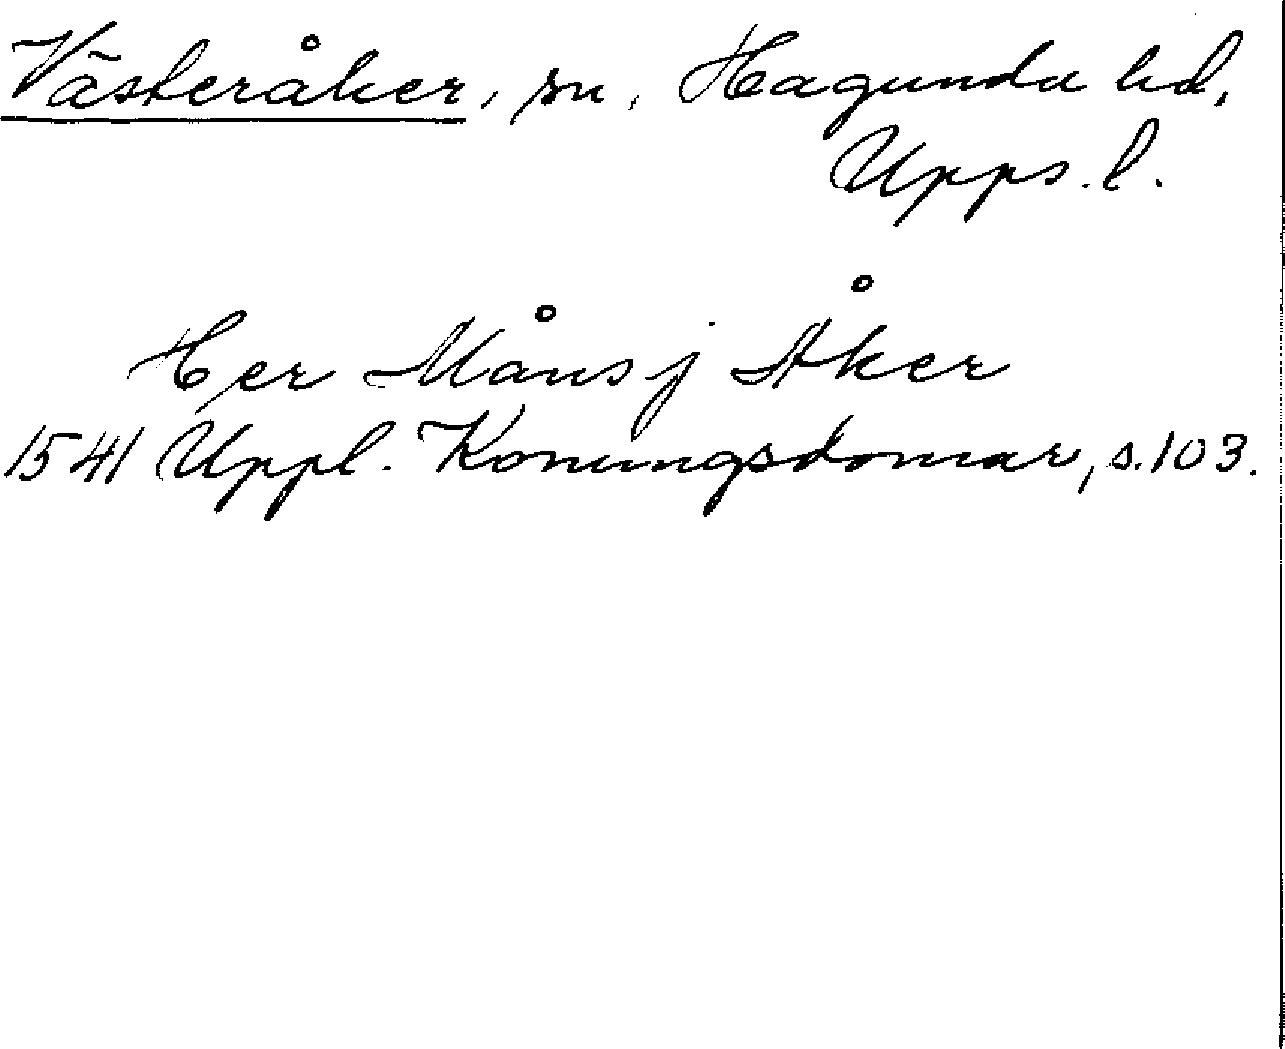 Västeråker, sn, Hagunda hd,
Upps. l.
Her Måns j Åker
1541 Uppl. Konungsdomar, s. 103.